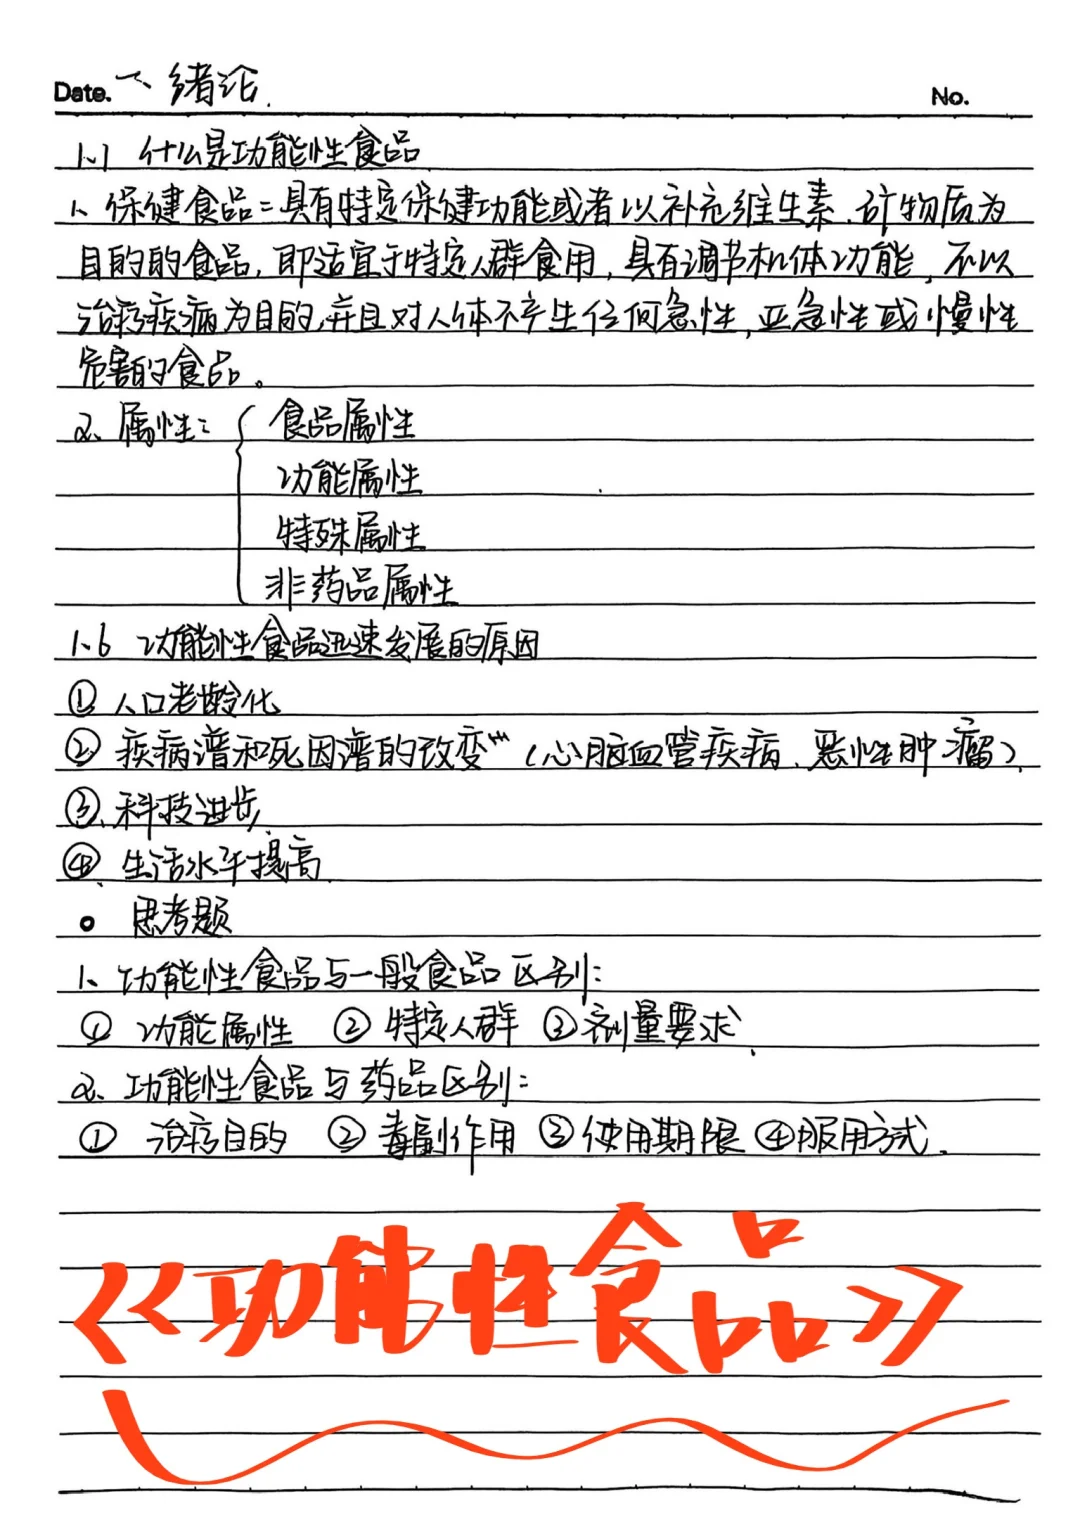 Date. 一、绪论.
No.
1.1 什么是功能性食品
1、保健食品=具有特定保健功能或者以补充维生素、矿物质为
目的的食品,即适宜于特定人群食用,具有调节机体功能,不以
治疗疾病为目的,并且对人体不产生任何急性,亚急性或慢性
危害的食品。
2、属性: { 食品属性
功能属性
特殊属性
非药品属性
1.6 功能性食品迅速发展的原因
① 人口老龄化
② 疾病谱和死因谱的改变"" (心脑血管疾病、恶性肿瘤).
③.科技进步.
④. 生活水平提高.
。思考题
1、功能性食品与一般食品区别:
① 功能属性 ② 特定人群 ③ 剂量要求.
2、功能性食品与药品区别:
① 治疗目的 ② 毒副作用 ③ 使用期限 ④服用方式.
《功能性食品》